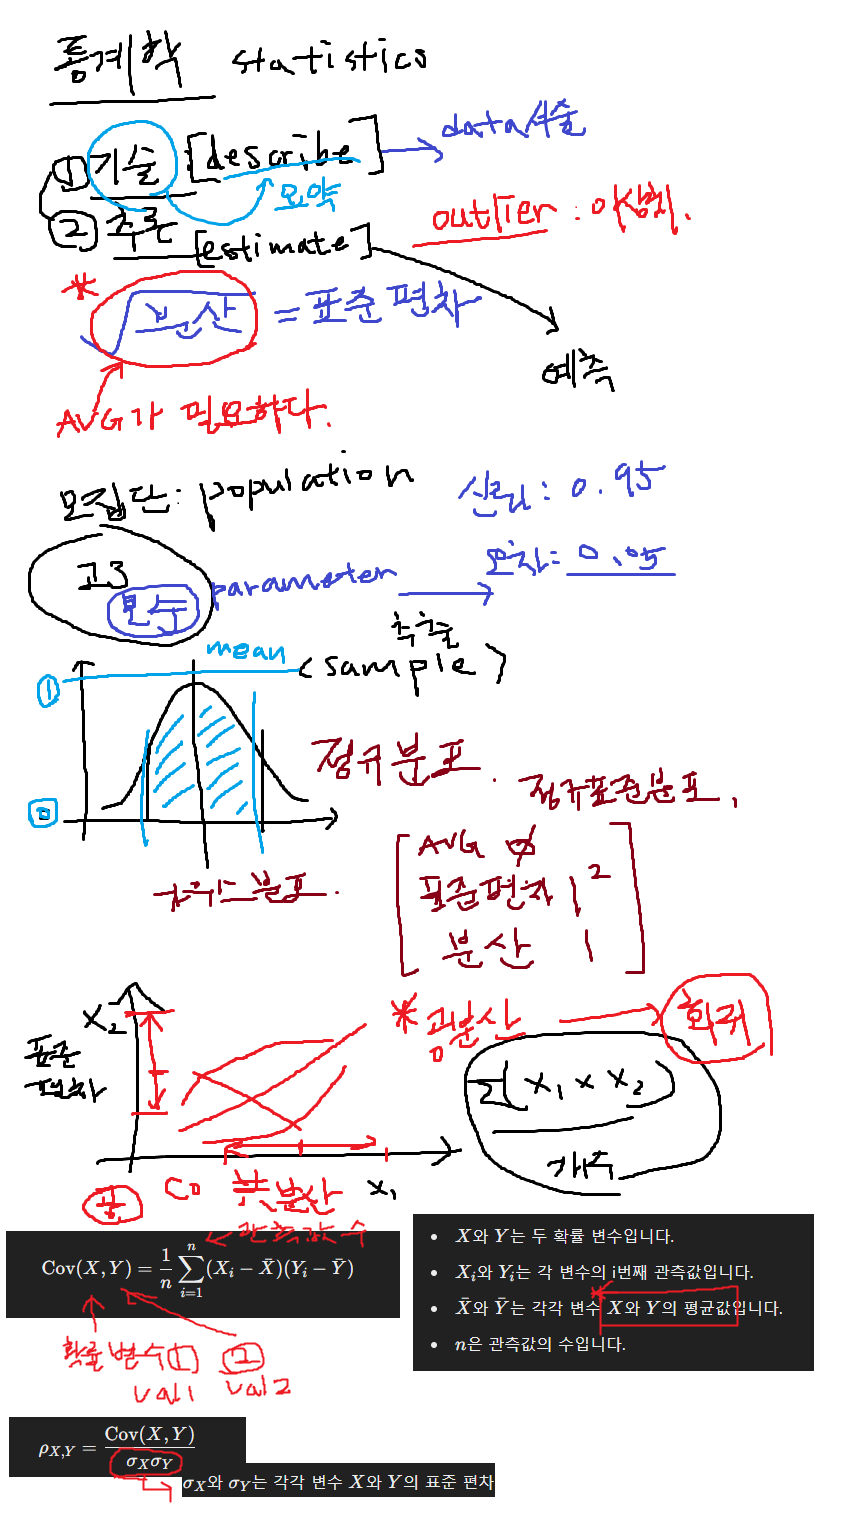 통계학 statistics
① 기술 [describe] → data 서술
요약
② 추론 [estimate]
outlier : 이상치.
* √분산 = 표준 편차
예측
AVG가 필요하다.
모집단 : population
신뢰 : 0.95
고3
모수 parameter → 오차 : 0.05
추출
mean (sample)
1
0
정규분포.
정규표준분포.
AVG 0
표준편차 1²
분산 1
X₂
표준
편차
* 공분산 → 회귀
Σ(X₁ × X₂)
공 CO 共분산 X₁
관측값 수
Cov(X, Y) = 1/n ∑ⁿᵢ₌₁ (Xᵢ − X̄)(Yᵢ − Ȳ)
확률 변수 ① ②
val1 val2
• X와 Y는 두 확률 변수입니다.
• Xᵢ와 Yᵢ는 각 변수의 i번째 관측값입니다.
• X̄와 Ȳ는 각각 변수 X와 Y의 평균값입니다.
• n은 관측값의 수입니다.
ρX,Y = Cov(X, Y) / σXσY
σX와 σY는 각각 변수 X와 Y의 표준 편차